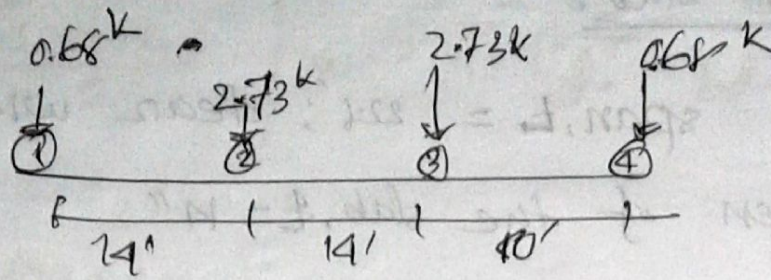 0.68k 2.73k 2.73k 0.68k
1 2 3 4
14' 14' 10'